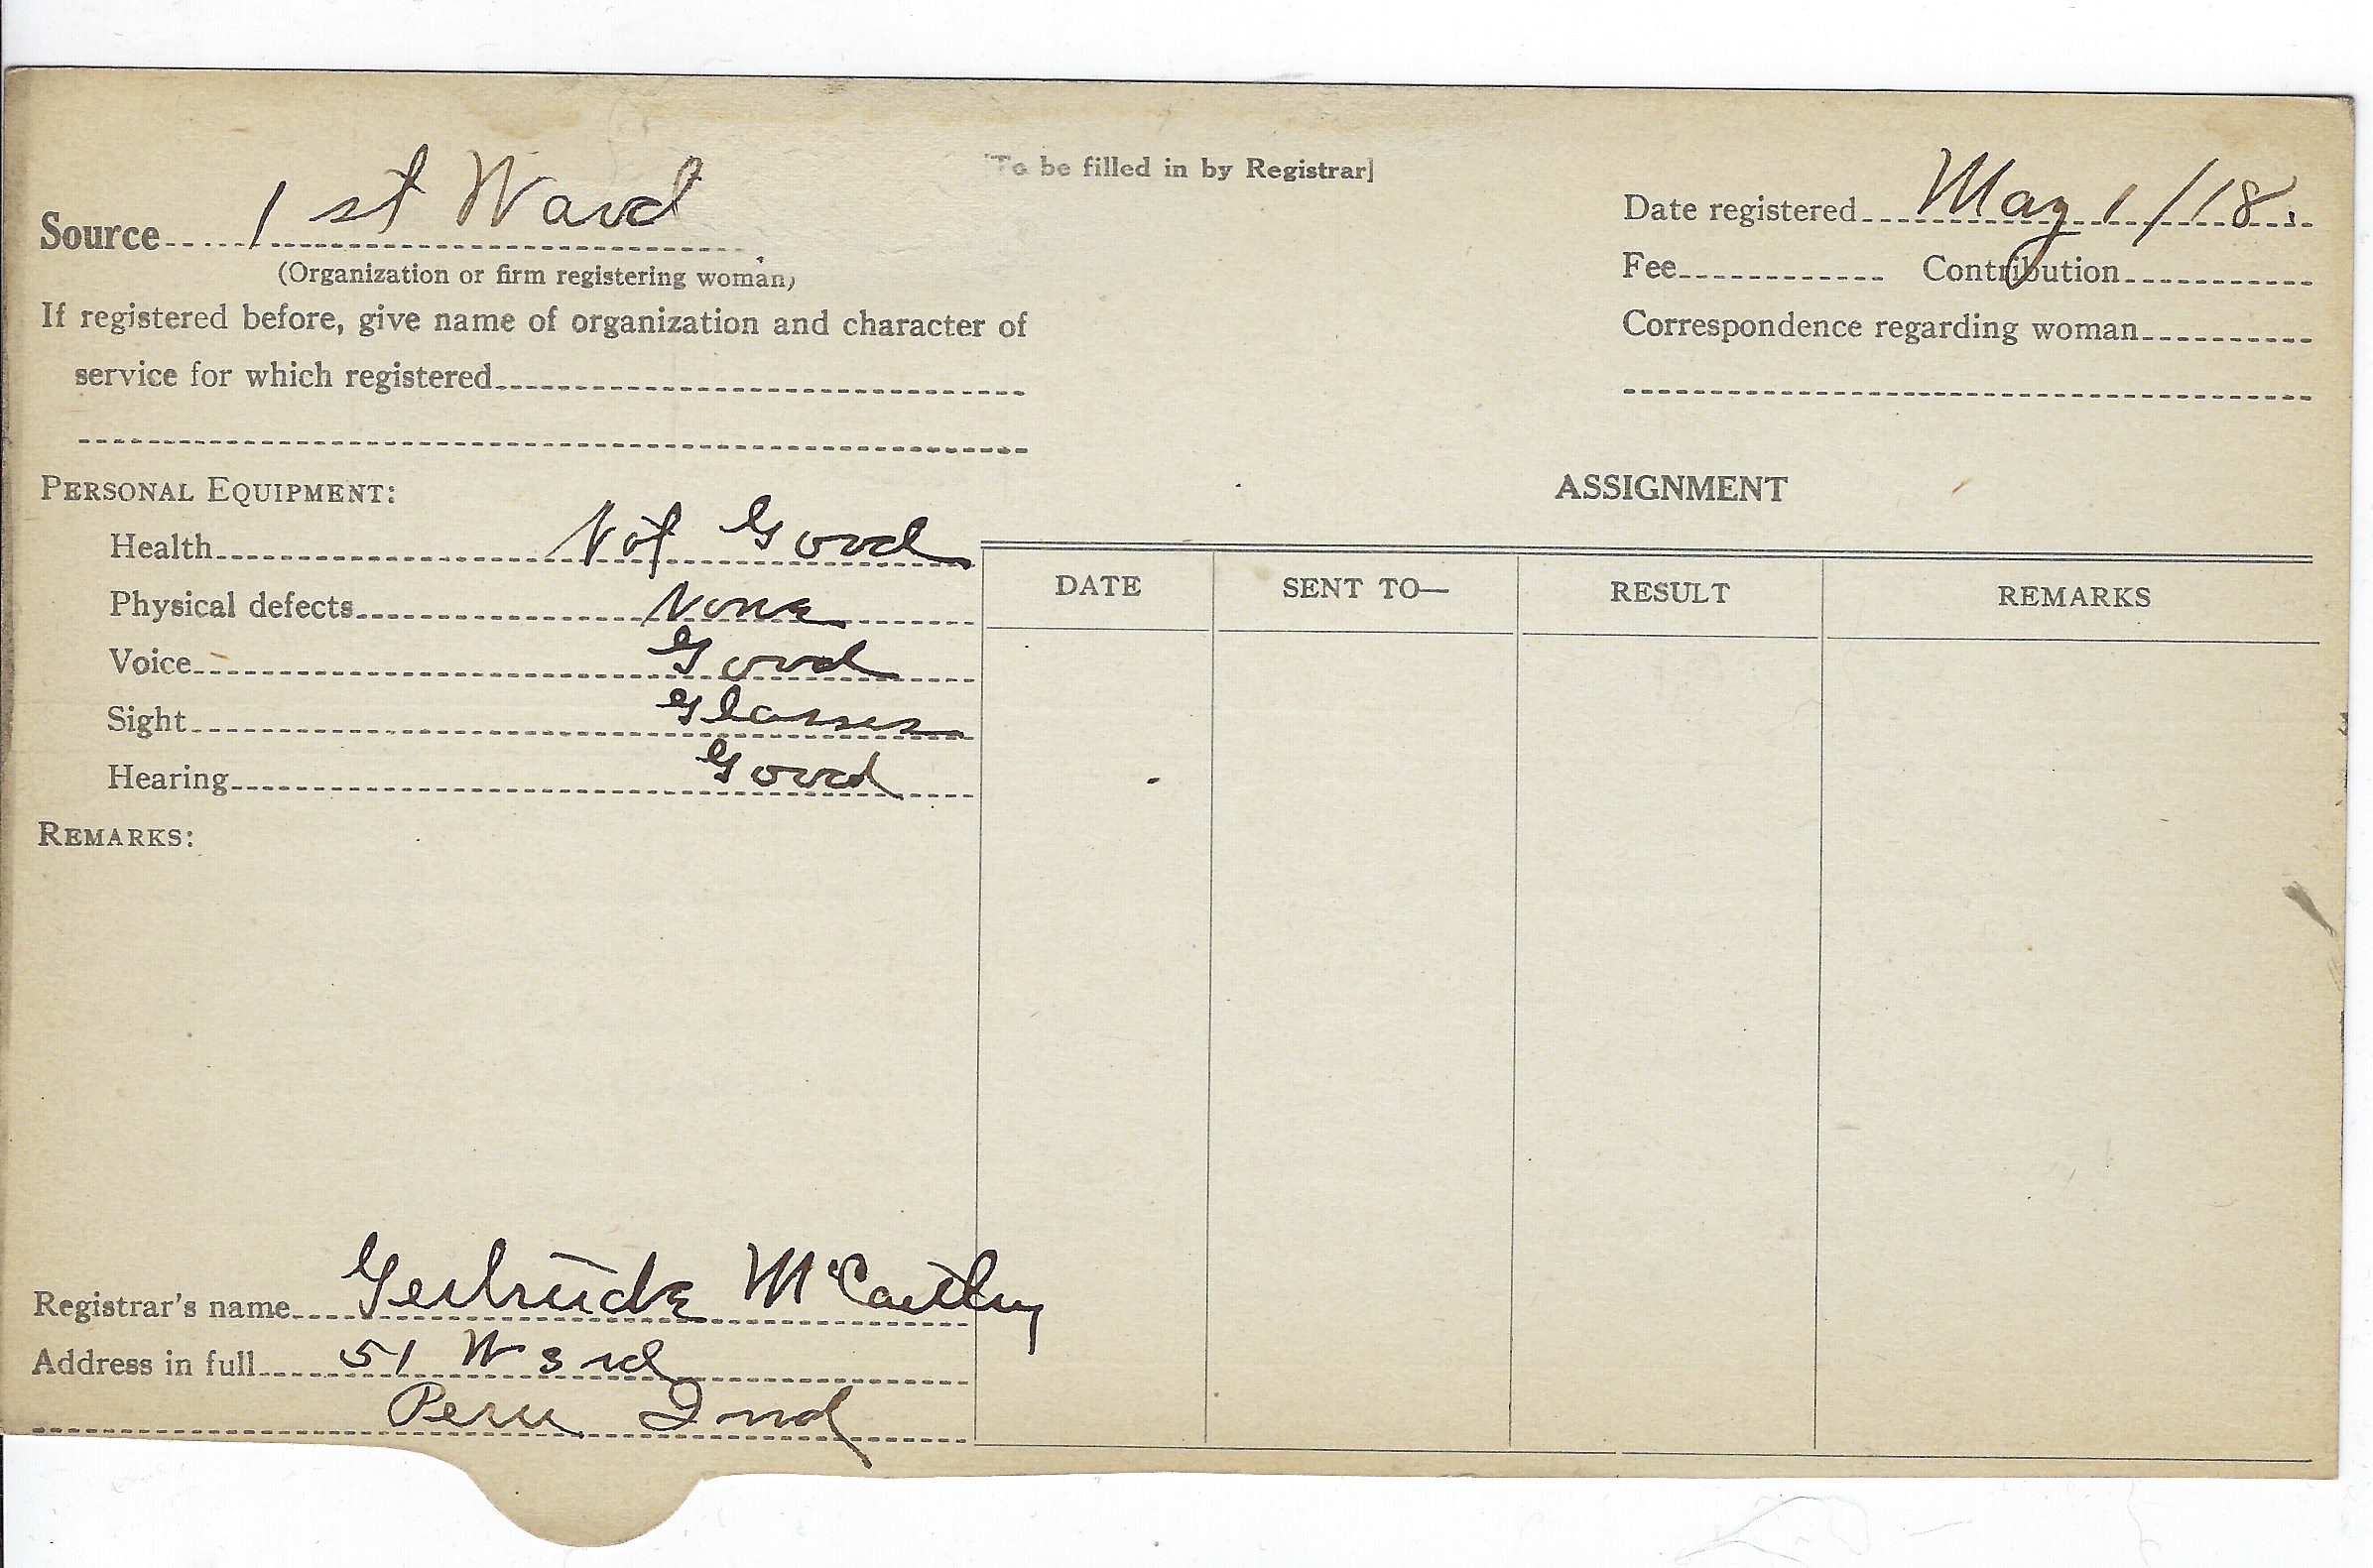 [To be filled in by Registrar]
Source 1 st Ward
(Organization or firm registering woman)
If registered before, give name of organization and character of
service for which registered
Date registered May 1/18.
Fee Contribution
Correspondence regarding woman
PERSONAL EQUIPMENT:
Health Not Good
Physical defects None
Voice Good
Sight Glasses
Hearing Good
REMARKS:
ASSIGNMENT
DATE SENT TO— RESULT REMARKS
Registrar's name Gertrude McCarthy
Address in full 51 W 3rd
Peru Ind